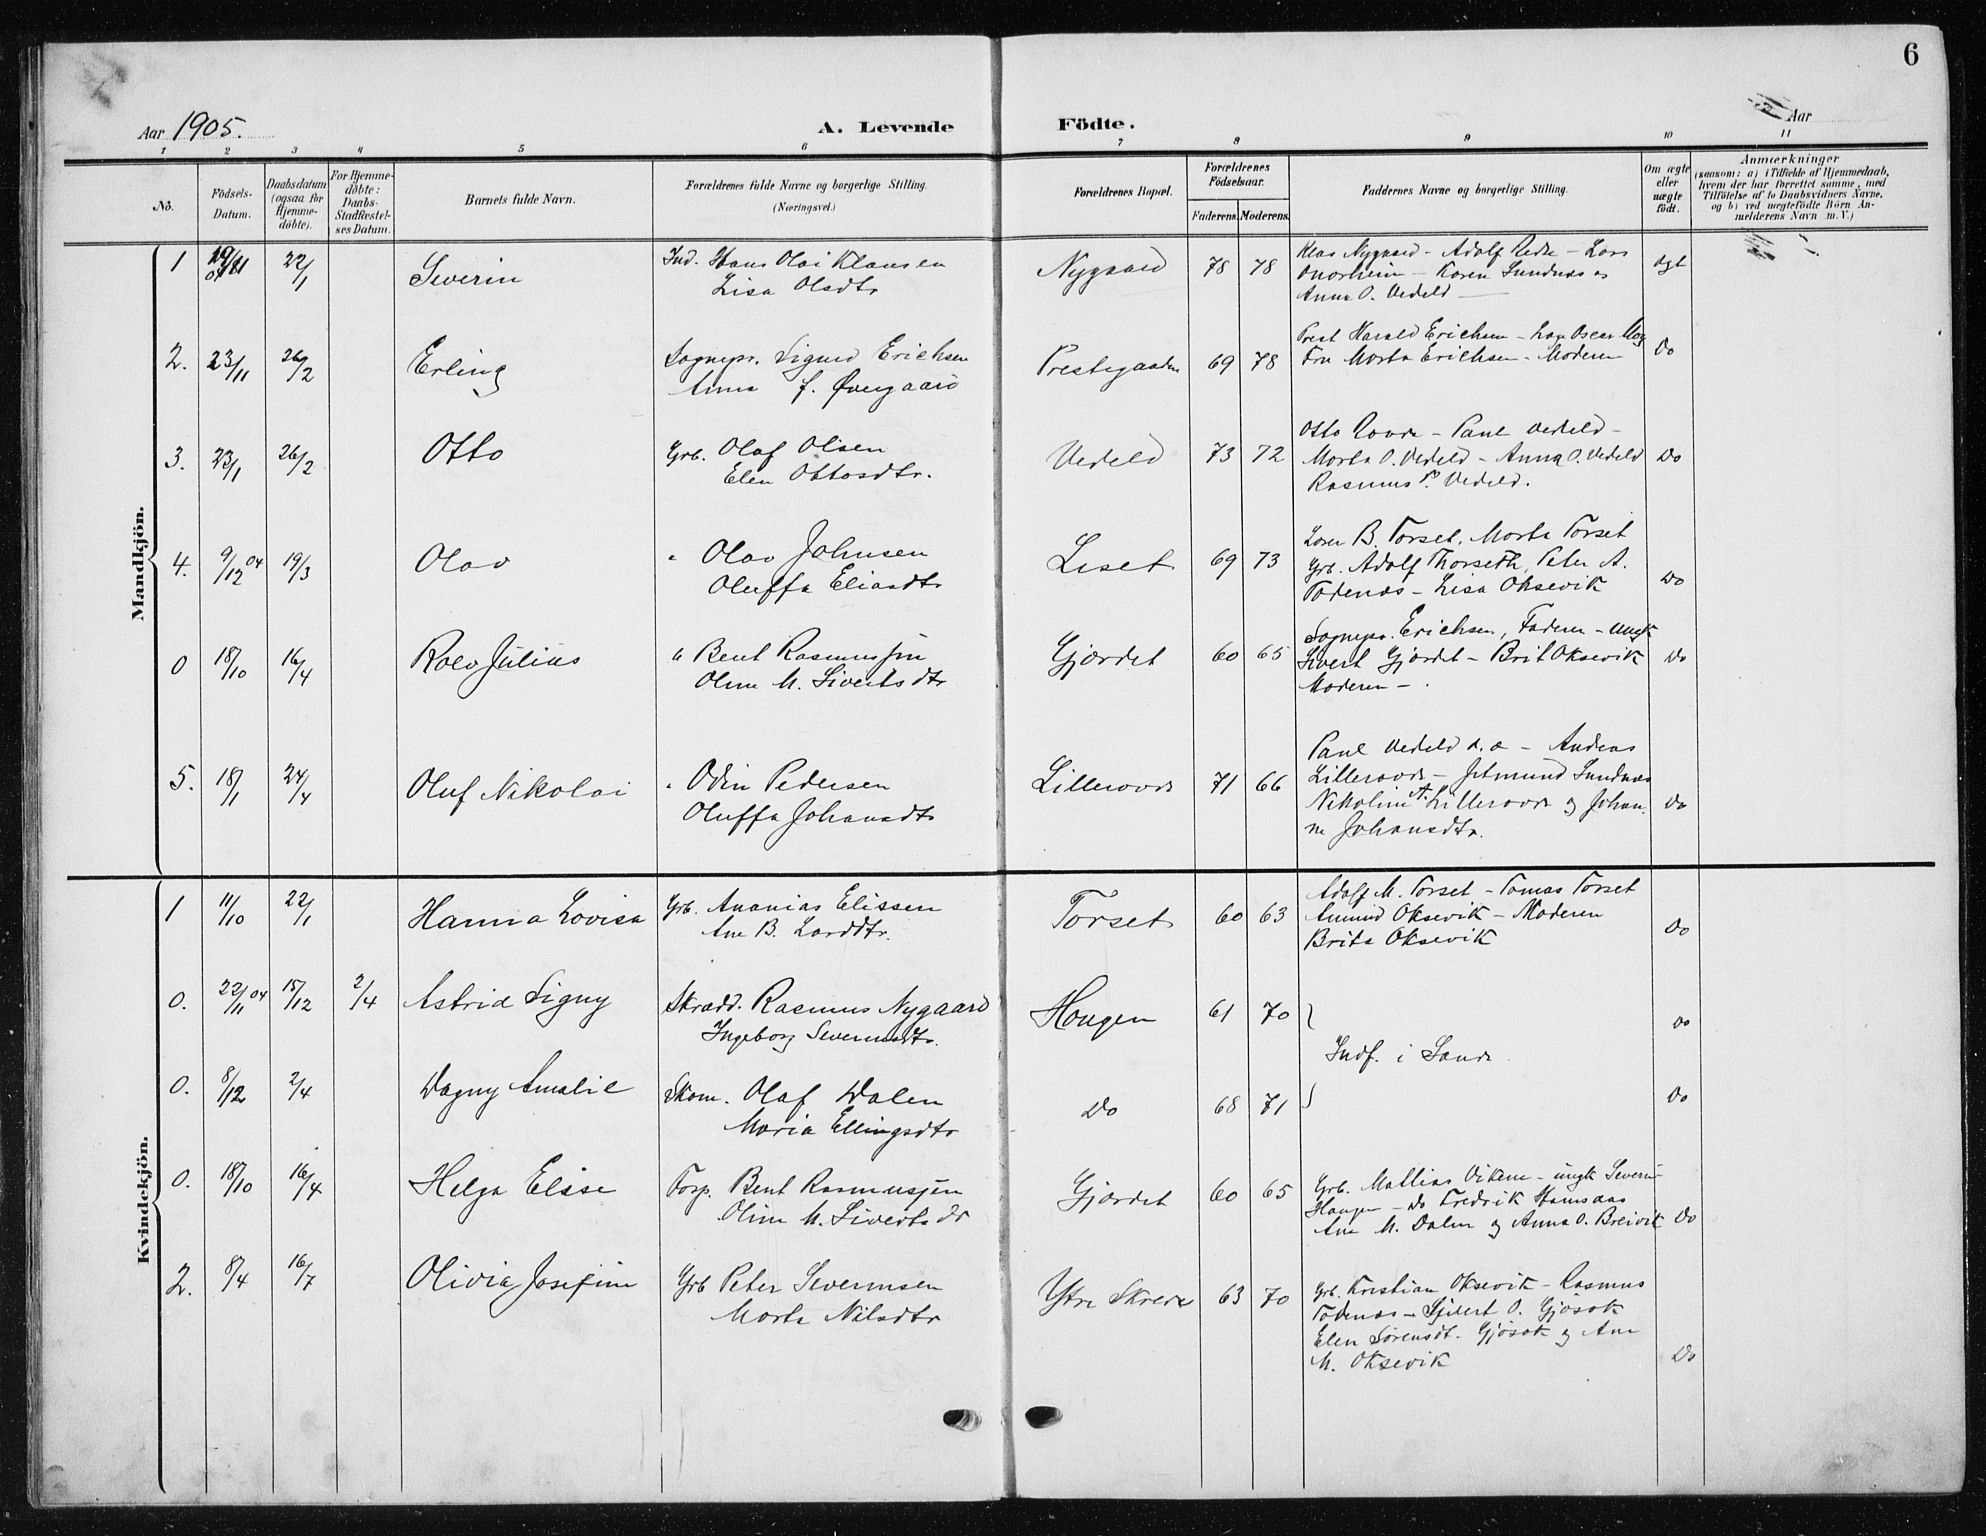 6
Aar 1905. A. Levende Födte. Aar
1 2 3 4 5 6 7 8 9 10 11
No. Födsels-Datum. Daabsdatum (ogsaa for Hjemme-döbte). For Hjemme-döbte: Daabs-Stadfæstel-ses Datum. Barnets fulde Navn. Forældrenes fulde Navne og borgerlige Stilling. (Næringsvei.) Forældrenes Bopæl. Forældrenes Födselsaar. Faderens. Moderens. Faddernes Navne og borgerlige Stilling. Om ægte eller uægte födt. Anmærkninger (saasom: a) i Tilfælde af Hjemmedaab, hvem der har forrettet samme, med Tilföielse af to Daabsvidners Navne, og b) ved uægtefödte Börn An-melderens Navn m. V.)
Mandkjön.
1 22/1 Severin Ind. Hans Olai Klausen Nygaard 78 78 Klas Nygaard - Adolf - Lars
Lisa Olsdtr - Karen Sundnes og
Anna O. Vedeld
ægt
2. 23/11 26/2 Erling Sognepr. Sigurd Erichsen Prestegaarden 69 78 Prest Harald Erichsen - Oscar
Anna f. Øvergaard Fru Marta Erichsen - Moderen Do
3. 23/1 26/2 Otto Grb. Olaf Olsen Vedeld 73 72 Otto - Paul Vedeld -
Elen Ottosdtr. Marta O. Vedeld - Anna O. Vedeld Do
Rasmus P. Vedeld.
4. 9/12 04 19/3 Olav " Olav Johnsen Liset 69 73 B. Torset, Marta Torset
Oluffa Eliasdtr Grb. Adolf Thorseth, Peter A.
Tødenæs - Lisa Oksevik Do
0 18/10 16/4 Rolv Julius " Bent Rasmussen Gjærdet 60 65 Sognepr. Erichsen, Faderen - ungk
Oline M. Sivertsdtr Sivert Gjærdet - Brit Oksevik Do
Moderen -
5. 18/1 24/4 Oluf Nikolai " Odin Pedersen Lillerovde 71 66 Paul Vedeld d. æ - Andreas
Oluffa Johansdtr Lillerovde - Jetmund Sundnæs
Nikoline A. Lillerovde og Johan- Do
ne Johansdtr.
Kvindekjön.
1 11/10 22/1 Hanna Lovisa Grb. Ananias Elissen Torset 60 63 Adolf M. Torset - Tomas Torset
Ane B. Larsdtr. Amund Oksevik - Moderen
Brita Oksevik Do
0. 22/11 04 15/12 2/4 Astrid Signy Skrædd. Rasmus Nygaard Haugen 61 70 Do
Ingeborg Severinsdtr.
Indf. i Sande
0. 8/12 2/4 Dagny Amalie Skom. Olaf Dalen Do 68 71 Do
Maria Ellingsdtr
0. 18/10 16/4 Helga Elise Forp. Bent Rasmussen Gjærdet 60 65 Grb. Mattias Vikene - ungk Severin
Oline M. Sivertsdr Haugen - Do Fredrik Hamsaas
Ane M. Dalen og Anna O. Breivik Do
2. 8/4 16/7 Olivia Josefine Grb Peter Severinsen Ytre Skrede 63 70 Grb. Kristian Oksevik - Rasmus
Marta Nilsdtr Tødenæs - Sivert O. Gjøsok
Elen Sørensdt. Gjøsok og Ane
M. Oksevik Do